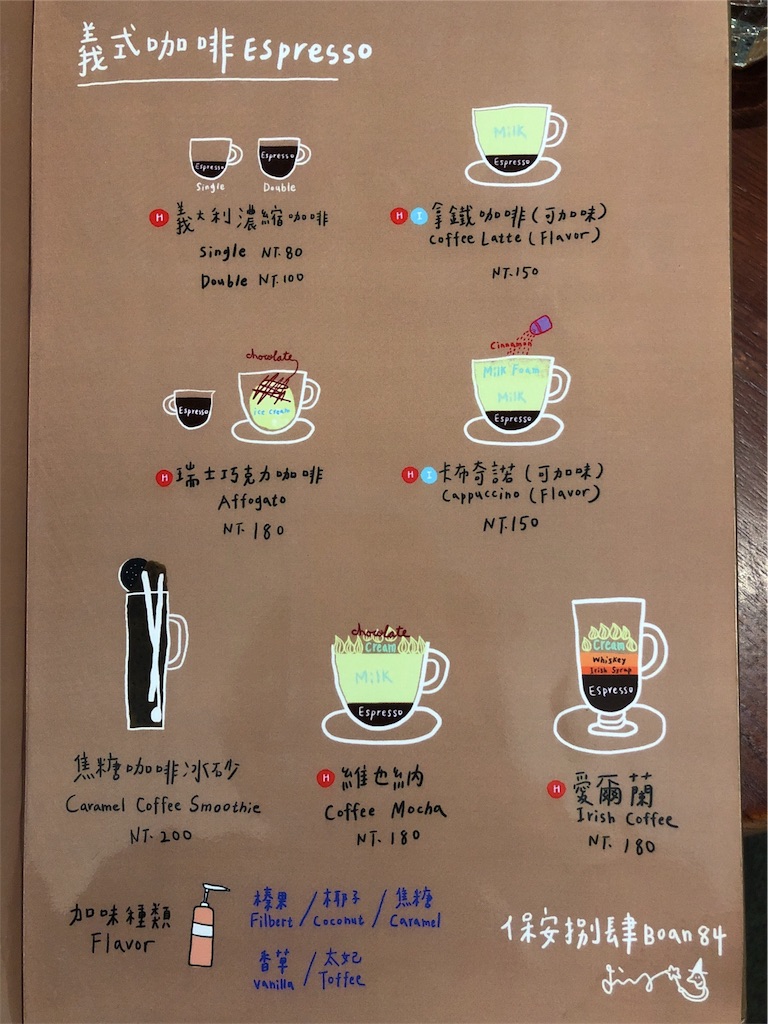 義式咖啡 Espresso
Espresso
Single
Espresso
Double
H 義大利濃縮咖啡
Single NT.80
Double NT.100
Milk
Espresso
H I 拿鐵咖啡(可加味)
Coffee Latte (Flavor)
NT.150
chocolate
Espresso
ice cream
H 瑞士巧克力咖啡
Affogato
NT.180
Cinnamon
Milk Foam
Milk
Espresso
H I 卡布奇諾(可加味)
Cappuccino (Flavor)
NT.150
焦糖咖啡冰砂
Caramel Coffee Smoothie
NT.200
chocolate
Cream
Milk
Espresso
H 維也納
Coffee Mocha
NT.180
Cream
Whiskey
Irish Syrup
Espresso
H 愛爾蘭
Irish Coffee
NT.180
加味種類
Flavor
榛果/椰子/焦糖
Filbert/Coconut/Caramel
香草/太妃
Vanilla/Toffee
保安捌肆 Boan 84